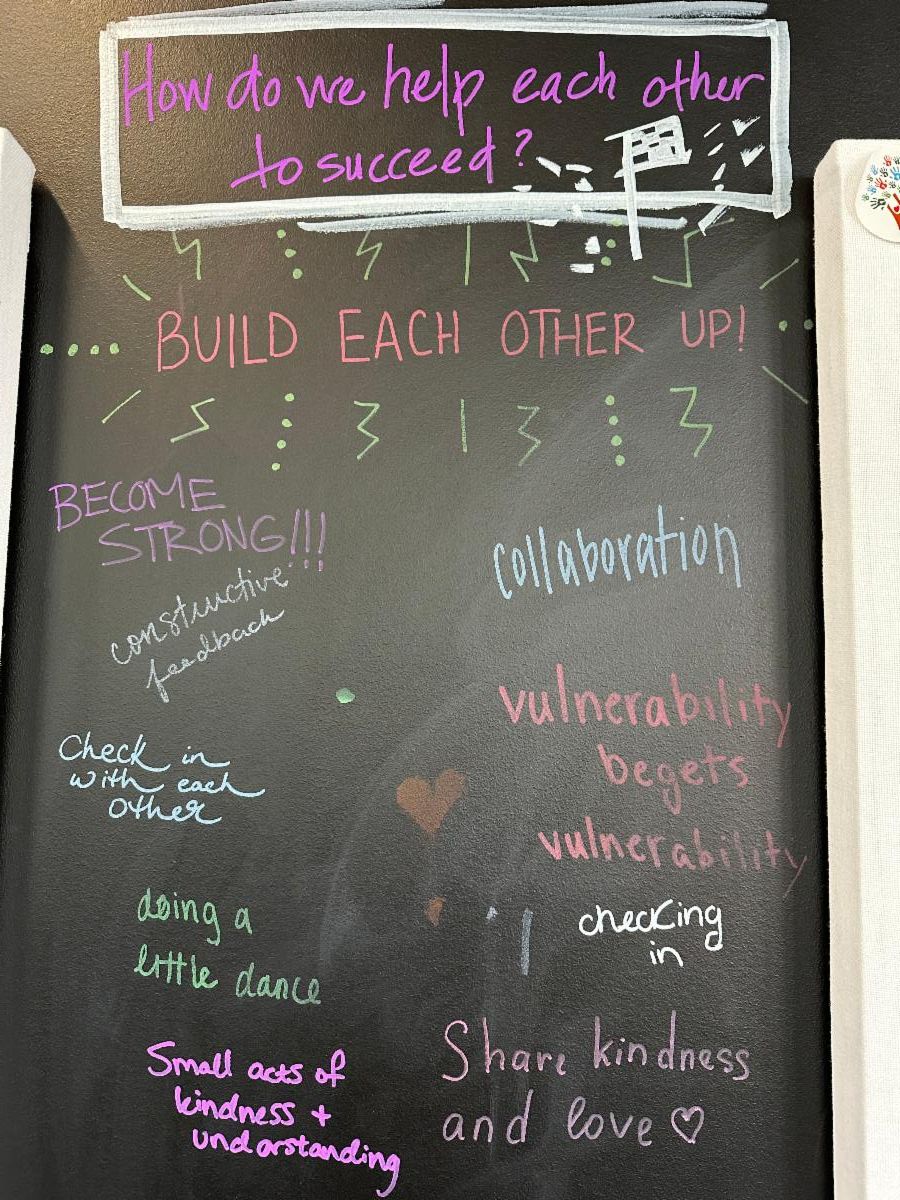 How do we help each other
to succeed?
BUILD EACH OTHER UP!
BECOME
STRONG!!!
constructive
feedback
collaboration
vulnerability
begets
vulnerability
Check in
with each
other
doing a
little dance
checking
in
Small acts of
kindness +
understanding
Share kindness
and love ♡